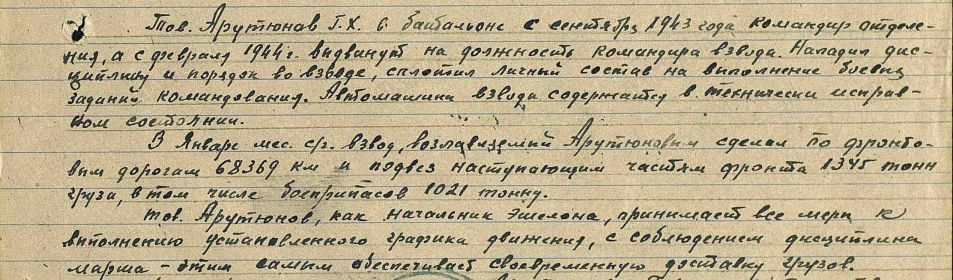 Тов. Арутюнов Г.Х. в батальоне с сентября 1943 года командир отделе-
ния, а с февраля 1944 г. выдвинут на должность командира взвода. Наладил дис-
циплину и порядок во взводе, сплотил личный состав на выполнение боевых
заданий командования. Автомашины взвода содержатся в технически исправ-
ном состоянии.
В Январе мес. с/г. взвод, возглавляемый Арутюновым сделал по фронто-
вым дорогам 68369 км и подвез наступающим частям фронта 1345 тонн
груза, в том числе боеприпасов 1021 тонну.
Тов. Арутюнов, как начальник эшелона, принимает все меры к
выполнению установленного графика движения, с соблюдением дисциплины
марша - этим самым обеспечивает своевременную доставку грузов.